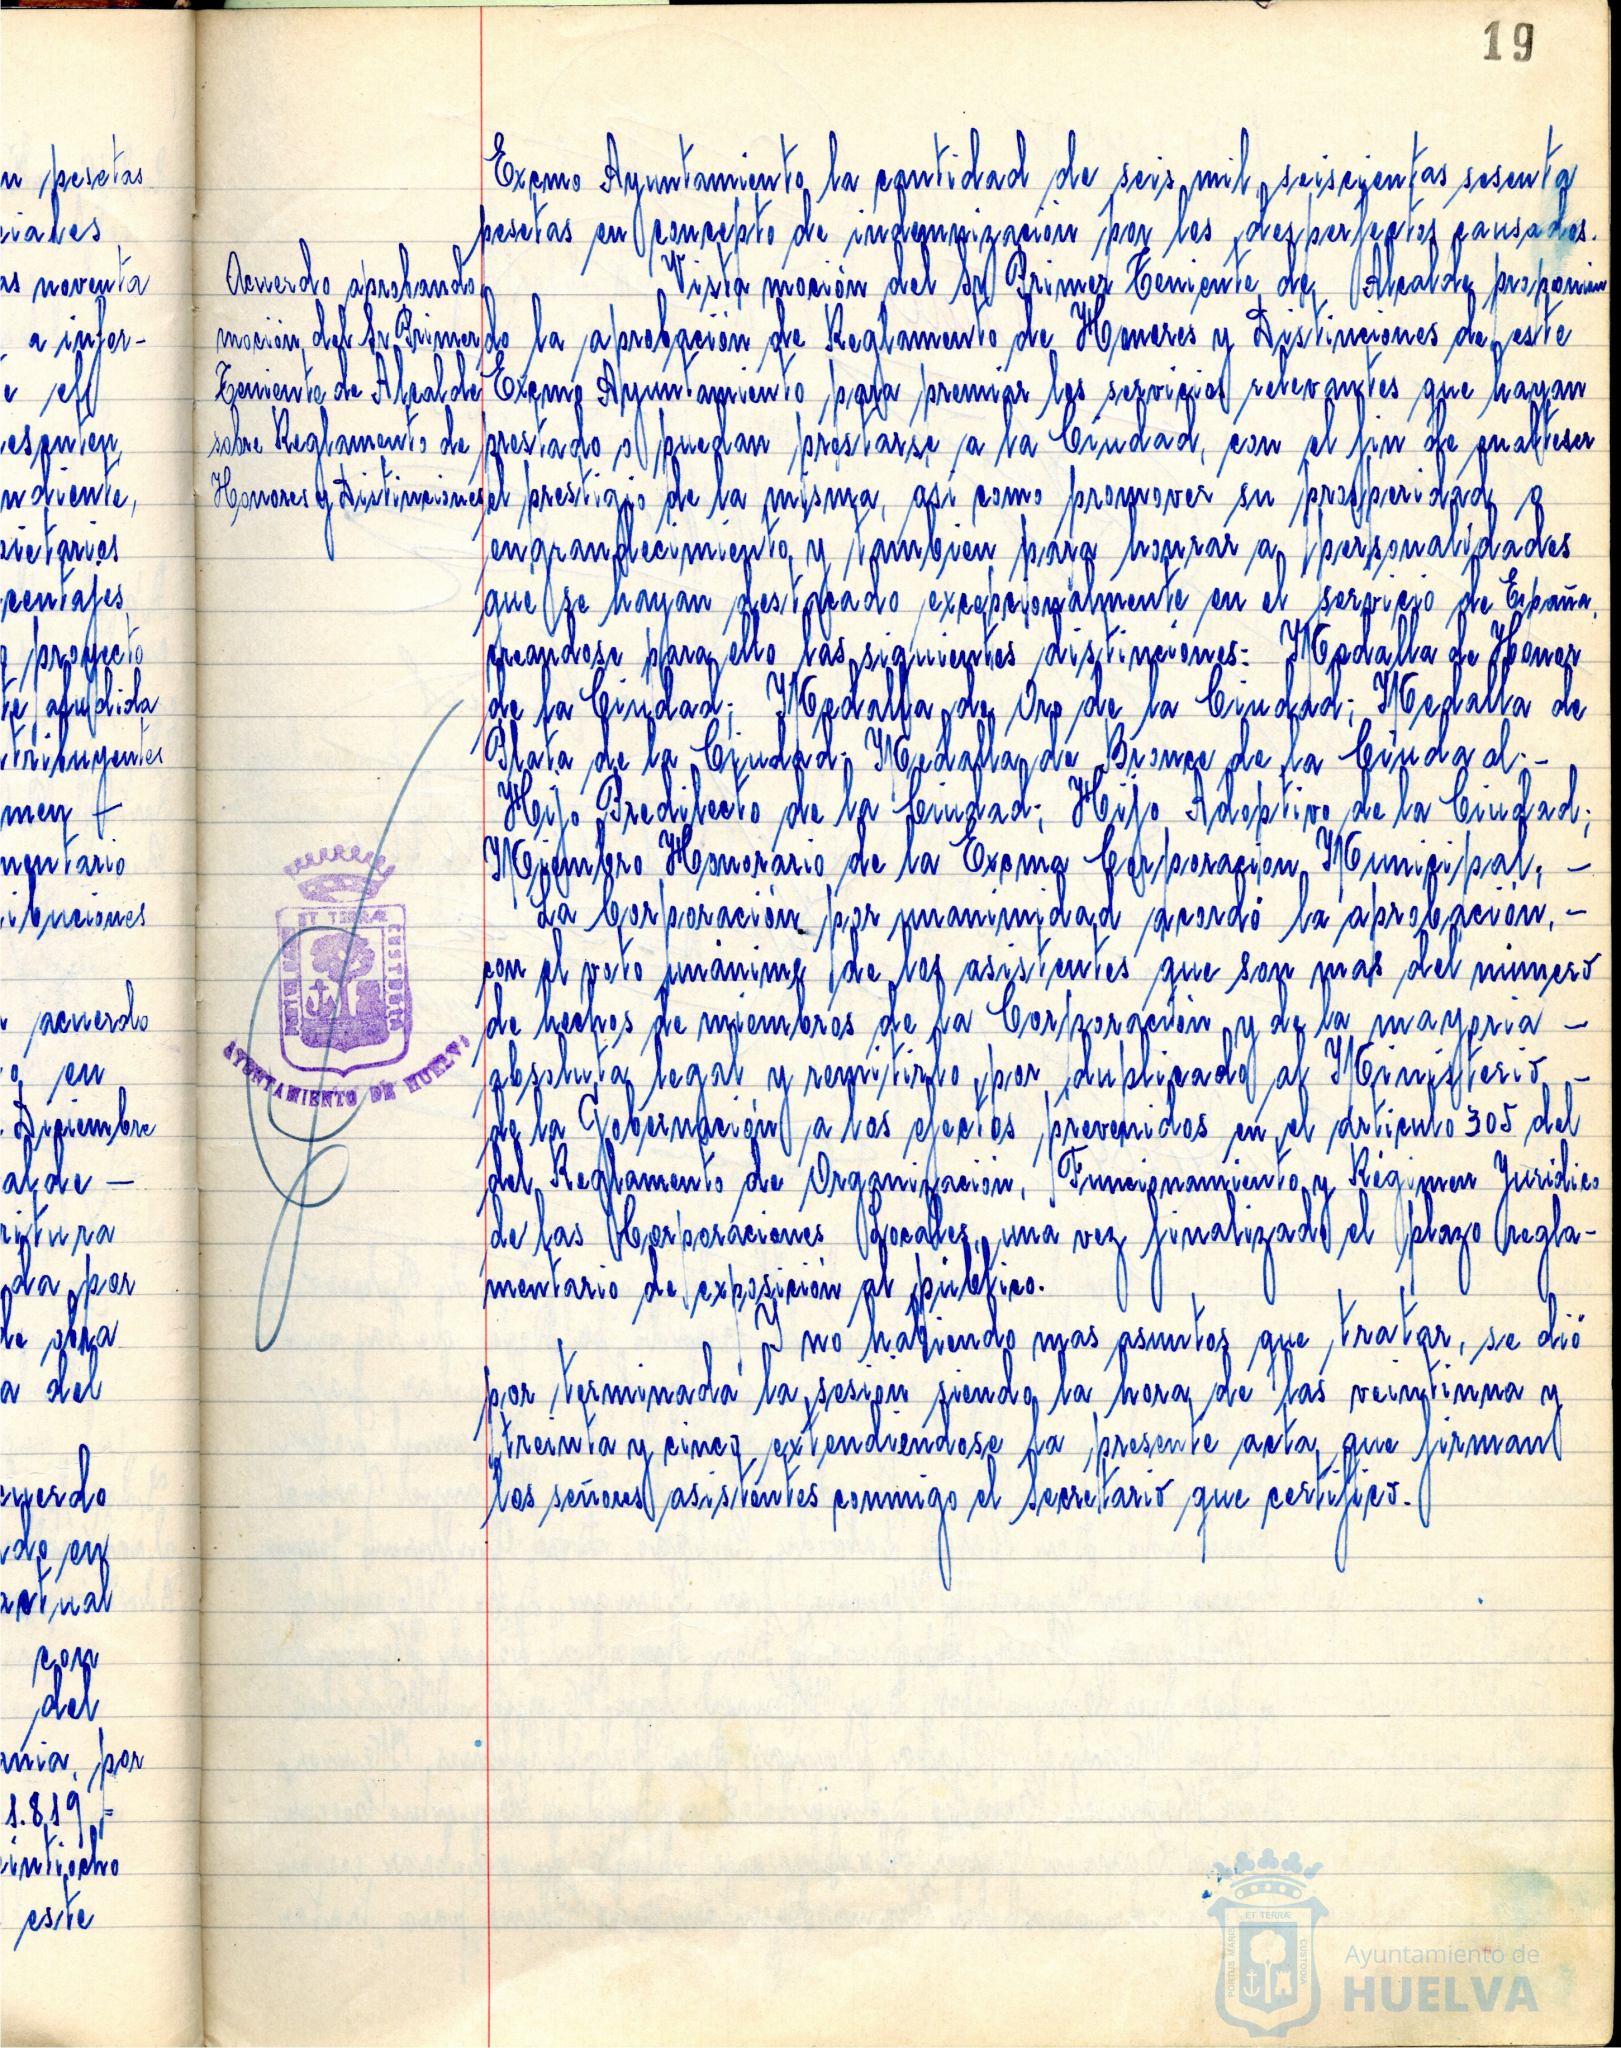 19
n pesetas
iales
as noventa
a infor-
e el
esenten
ndiente,
pietarios
centajes
proyecto
te aludida
tribuyentes
men
mentario
ibuciones
acuerdo
en
Diciembre
alde —
ritura
da por
de obra
a del
uerdo
do en
actual
con
del
ania, por
1.819 -
eintiocho
este
Acuerdo aprobando
moción del Sr Primer
Teniente de Alcalde
sobre Reglamento de
Honores y Distinciones
Excmo Ayuntamiento la cantidad de seis mil seiscientas sesenta
pesetas en concepto de indemnización por los desperfectos causados.
Vista moción del Sr Primer Teniente de Alcalde proponien
do la aprobación de Reglamento de Honores y Distinciones de este
Excmo Ayuntamiento para premiar los servicios relevantes que hayan
prestado o puedan prestarse a la Ciudad, con el fin de enalteser
el prestigio de la misma, asi como promover su prosperidad o
engrandecimiento y tambien para honrar a personalidades
que se hayan destacado excepcionalmente en el servicio de España,
creandose para ello las siguientes distinciones: Medalla de Honor
de la Ciudad; Medalla de Oro de la Ciudad; Medalla de
Plata de la Ciudad; Medalla de Bronce de la Ciudad; -
Hijo Predilecto de la Ciudad; Hijo Adoptivo de la Ciudad;
Miembro Honorario de la Excma Corporación Municipal; -
La Corporación por unanimidad acordó la aprobación, -
con el voto unánime de los asistentes que son mas del número
de hechos de miembros de la Corporación y de la mayoria -
absoluta legal y remitirlo por duplicado al Ministerio -
de la Gobernación a los efectos prevenidos en el articulo 305 del
del Reglamento de Organización, Funcionamiento y Régimen Juridico
de las Corporaciones Locales, una vez finalizado el plazo regla-
mentario de exposición al público.
Y no habiendo mas asuntos que tratar, se dió
por terminada la sesión siendo la hora de las veintiuna y
treinta y cinco extendiendose la presente acta que firman
los señores asistentes conmigo el secretario que certifico.
ET TERRÆ
CUSTODIA
AYUNTAMIENTO DE HUELVA
PORTUS MARIS
ET TERRÆ
CUSTODIA
Ayuntamiento de
HUELVA